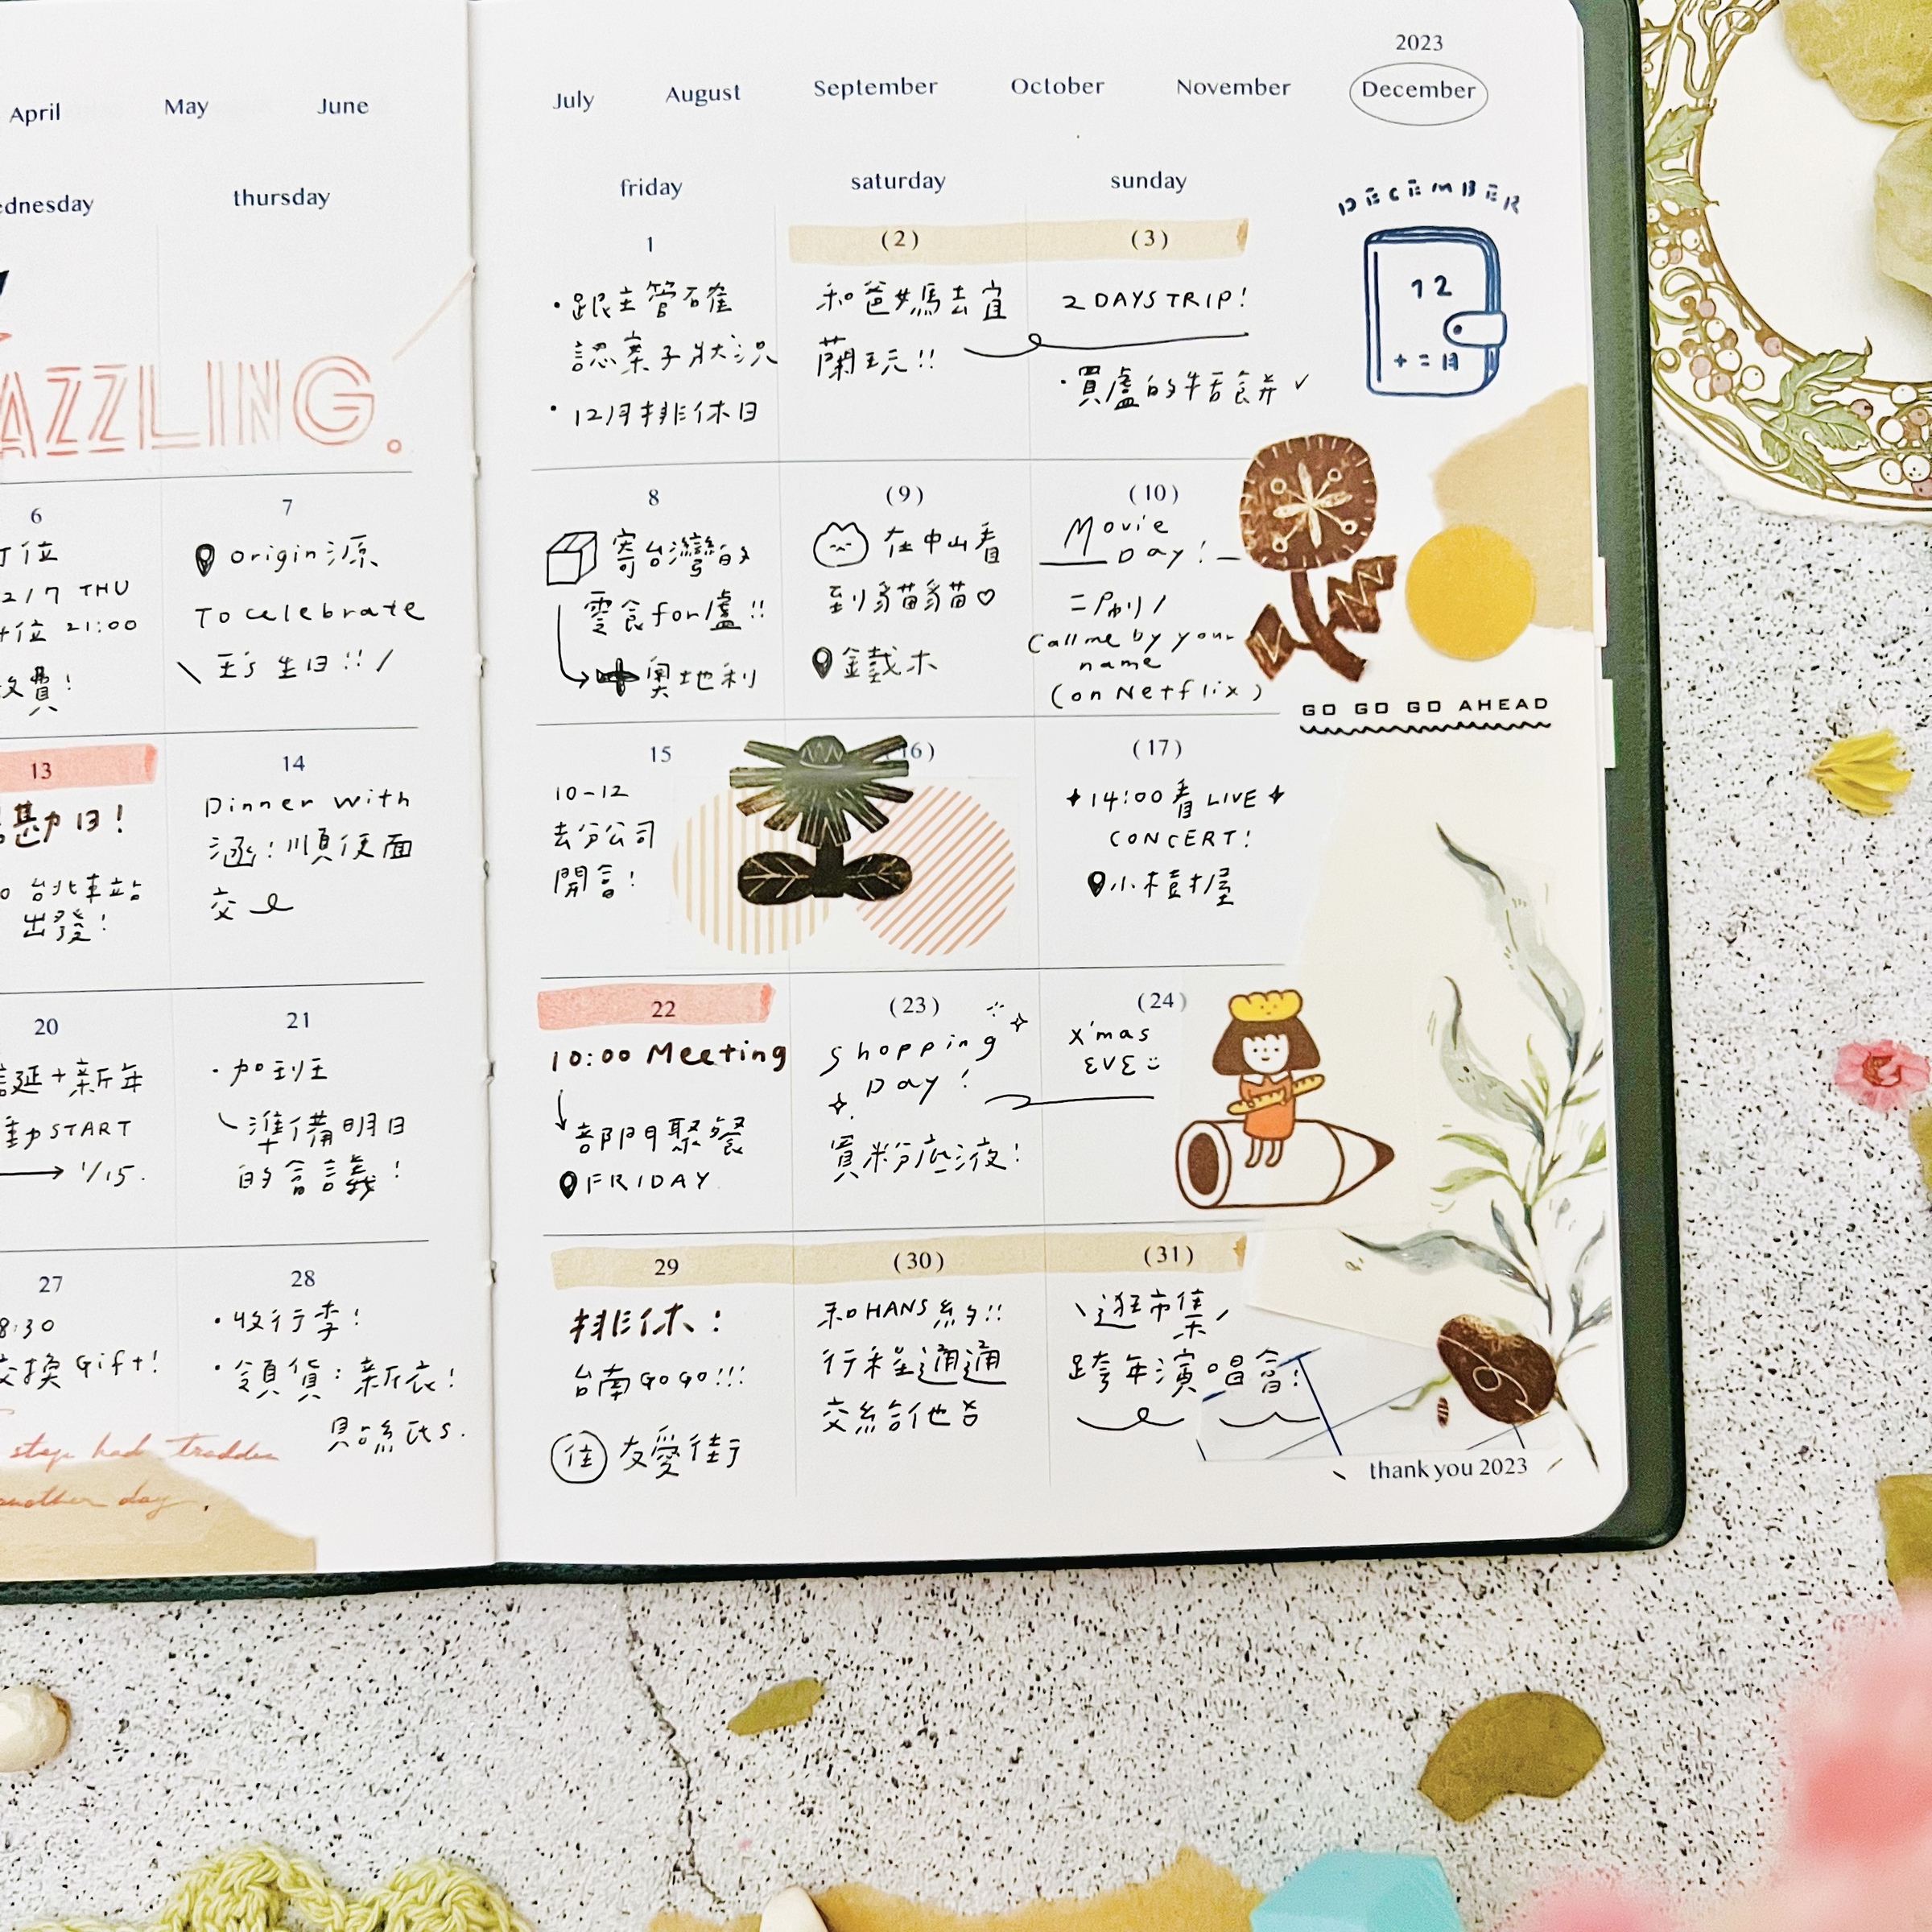 2023
April May June July August September October November December
thursday friday saturday sunday
DECEMBER
12
十二月
AZZLING.
1
・跟主管確
認案子狀況
・12月排休日
(2)
和爸媽去宜
蘭玩!!
(3)
2 DAYS TRIP!
・買盧的牛舌餅✓
6
訂位
12/7 THU
21:00
費!
7
origin 源
To celebrate
\ 王's 生日!! /
8
寄台灣的
零食for盧!!
奧地利
(9)
在中山看
到貓貓♡
鐵木
(10)
Movie
Day!
二刷/
Call me by your
name
(on Netflix)
GO GO GO AHEAD
13
勘日!
台北車站
出發!
14
Dinner with
涵!順便面
交
15
10-12
去分公司
開會!
16)
(17)
14:00 看 LIVE
CONCERT!
小樹屋
20
誕+新年
動START
→ 1/15.
21
・加到班
準備明日
的會議!
22
10:00 Meeting
部門聚餐
FRIDAY
(23)
shopping
Day!
買粉底液!
(24)
X'mas
EVE
27
8:30
交換 Gift!
28
・收行李!
・領貨:新衣!
貼紙ets.
step had trodden
another day.
29
排休:
台南GoGo!!!
住 友愛街
(30)
和HANS約!!
行程通通
交給他吉
(31)
\逛市集/
跨年演唱會!
thank you 2023